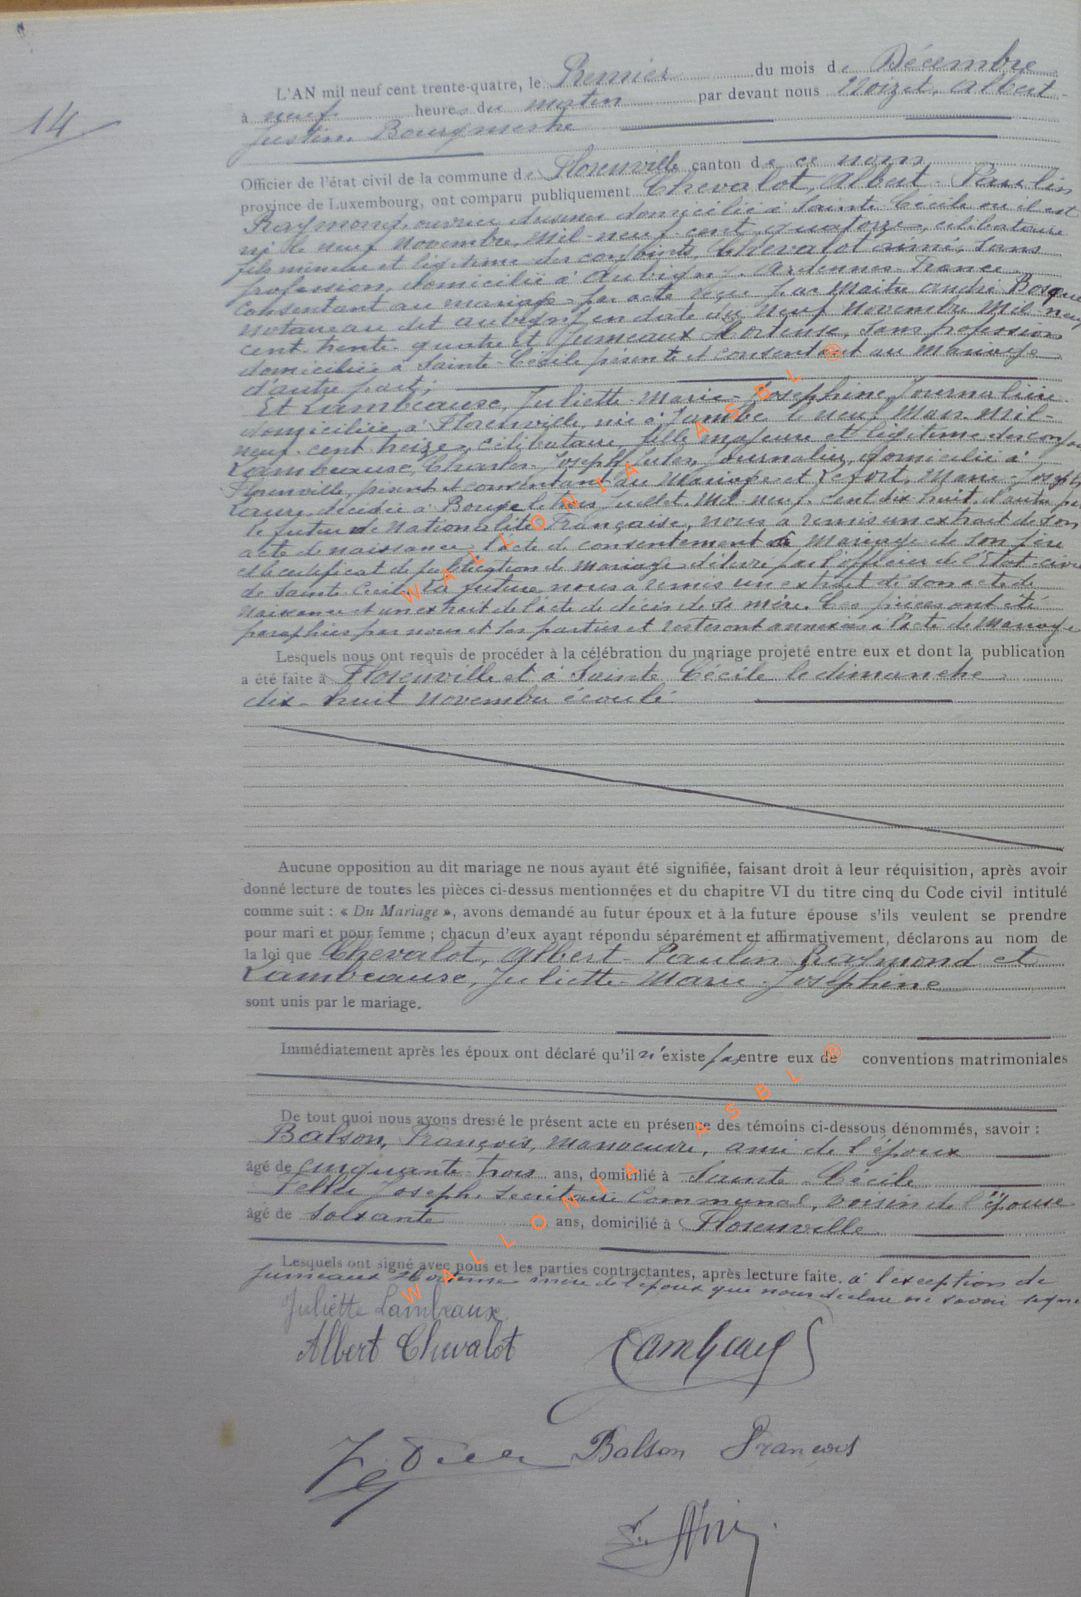 14
L'AN mil neuf cent trente-quatre, le Premier du mois de Décembre
à neuf heures du matin par devant nous Noizet, Albert-
Justin, Bourgmestre
Officier de l'état civil de la commune de Florenville canton de ce nom
province de Luxembourg, ont comparu publiquement Chevalot, Albert-Paulin
Raymond, ouvrier domicilié à Sainte Cécile où il est
né le neuf novembre mil-neuf-cent quatorze, célibataire
fils mineur et légitime des conjoints, Chevalot aimé, sans
profession, domicilié à Aubigny, Ardennes France
Consentant au mariage par acte reçu par Maître André
notaire au dit Aubigny en date du neuf novembre mil neuf
cent-trente-quatre et Jumeaux Hortense, sans profession
domiciliée à Sainte-Cécile présente et consentant au mariage
d'autre part;
Et Lambeause, Juliette-Marie-Josephine, Journalière
domiciliée à Florenville, née à Jambe le neuf Mars mil-
neuf-cent treize, célibataire, fille majeure et légitime des conjoints
Lambeause, Charles-Joseph-Jules, Journalier, domicilié à
Florenville, présent et consentant au mariage et Lefort, Marie-Joseph
Laure, décédée à Bouge le trois Juillet mil-neuf-cent dix huit d'autre part
le futur de Nationalité Française, nous a remis un extrait de son
acte de naissance, l'acte de consentement à mariage de son père
et le certificat de publication de mariage délivré par l'officier de l'Etat-civil
de Sainte Cécile. La future nous a remis un extrait de son acte de
naissance et un extrait de l'acte de décès de sa mère. Ces pièces ont été
paraphées par nous et les parties et resteront annexées à l'acte de mariage
Lesquels nous ont requis de procéder à la célébration du mariage projeté entre eux et dont la publication
a été faite à Florenville et à Sainte Cécile le dimanche
dix-huit novembre écoulé
Aucune opposition au dit mariage ne nous ayant été signifiée, faisant droit à leur réquisition, après avoir
donné lecture de toutes les pièces ci-dessus mentionnées et du chapitre VI du titre cinq du Code civil intitulé
comme suit : « Du Mariage », avons demandé au futur époux et à la future épouse s'ils veulent se prendre
pour mari et pour femme ; chacun d'eux ayant répondu séparément et affirmativement, déclarons au nom de
la loi que Chevalot, Albert-Paulin Raymond et
Lambeause, Juliette-Marie-Josephine
sont unis par le mariage.
Immédiatement après les époux ont déclaré qu'il n'existe pas entre eux de conventions matrimoniales
De tout quoi nous avons dressé le présent acte en présence des témoins ci-dessous dénommés, savoir :
Balson, François, manoeuvre, ami de l'époux
âgé de cinquante-trois ans, domicilié à Sainte Cécile
Joseph, Secrétaire Communal, voisin de l'épouse
âgé de soixante ans, domicilié à Florenville
Lesquels ont signé avec nous et les parties contractantes, après lecture faite, à l'exception de
Jumeaux Hortense mère de l'époux que nous déclare ne savoir signer
Juliette Lambeaux
Albert Chevalot
Balson François
WALLONIA ASBL ®
WALLONIA ASBL ®